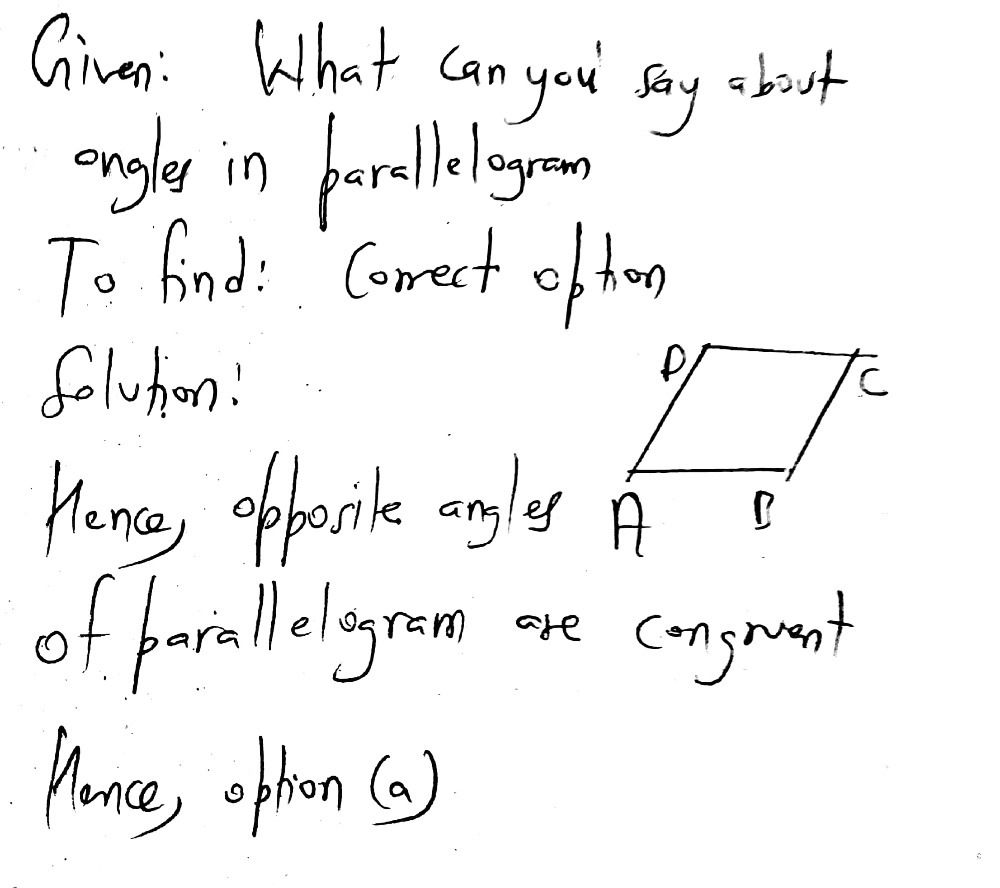 Given: What can you say about
angles in parallelogram
To find: Correct option
Solution:
D
C
Hence, opposite angles
A
B
of parallelogram are congruent
Hence, option (a)